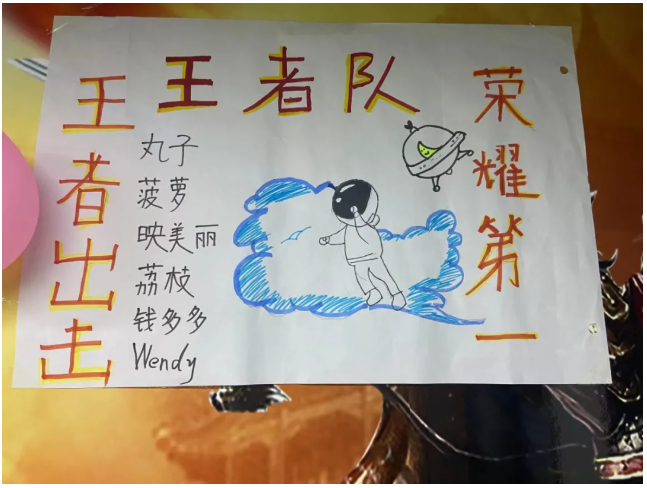 王者队
王者出击
丸子
菠萝
映美丽
荔枝
钱多多
Wendy
荣耀第一